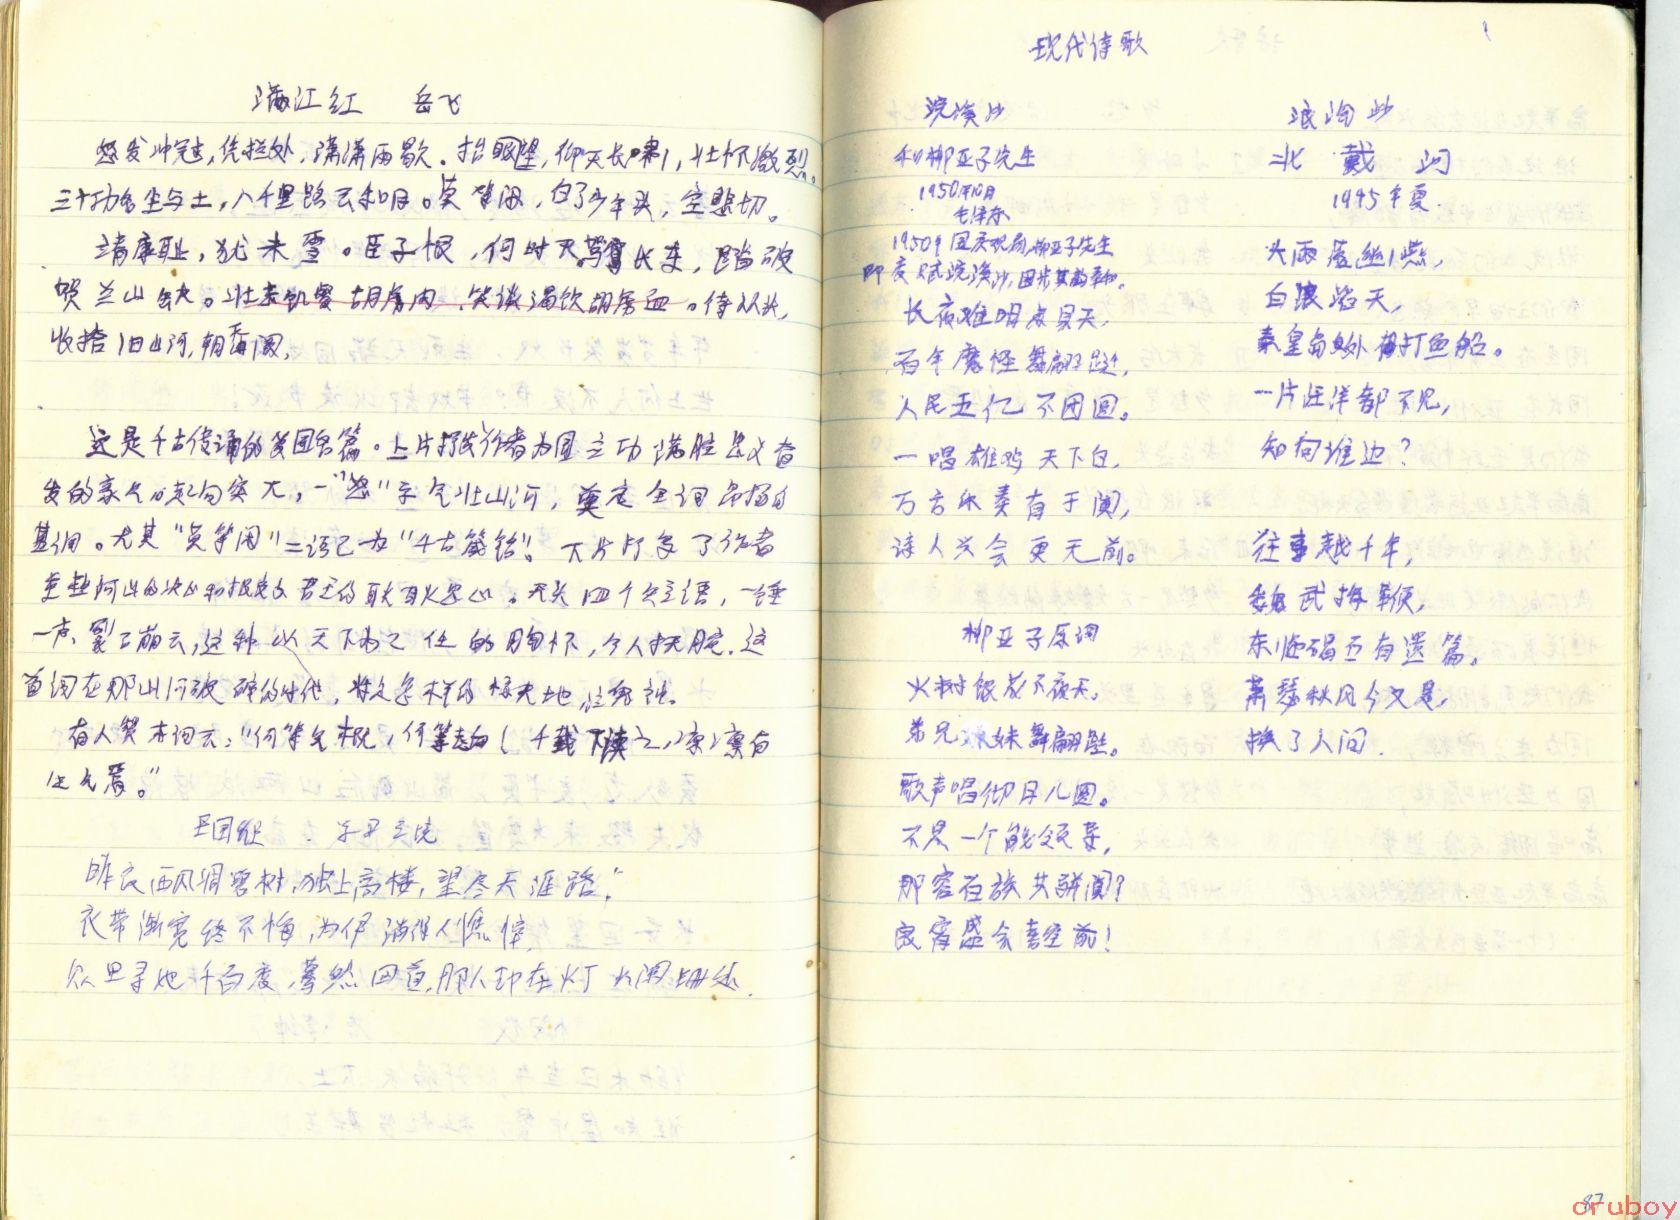 满江红 岳飞
怒发冲冠,凭拦处,潇潇雨歇。抬眼望,仰天长啸,壮怀激烈。
三十功名尘与土,八千里路云和月。莫等闲,白了少年头,空悲切。
靖康耻,犹未雪。臣子恨,何时灭。驾长车,踏破
贺兰山缺。壮志饥餐胡虏肉,笑谈渴饮胡虏血。待从头,
收拾旧山河,朝天阙,
这是千古传诵的爱国名篇。上片抒发作者为国立功满腔忠义奋
发的豪气。起句突兀,一"怒"字气壮山河,奠定全词昂扬的
基调。尤其"莫等闲"二语已为"千古箴铭"。下片抒写了作者
重整河山的决心和报效君王的耿耿忠心。
一声,裂石崩云,这种以天下为己任的胸怀,令人
首词在那山河破碎的时代,
有人赞本词云:"何等气概,何等志向!千载下读之,凛凛有
生气焉。"
王国维
昨夜西风凋碧树,独上高楼,望尽天涯路,"
衣带渐宽终不悔,为伊消得人憔悴,
众里寻他千百度,蓦然回首,那人却在灯火阑珊处.
现代诗歌
浣溪沙
和柳亚子先生
1950年10月
毛泽东
1950年国庆观剧,柳亚子先生
即席赋浣溪沙,因步其韵奉和。
长夜难明赤县天,
百年魔怪舞翩跹,
人民五亿不团圆。
一唱雄鸡天下白,
万方乐奏有于阗,
诗人兴会更无前。
柳亚子原词
火树银花不夜天,
弟兄姊妹舞翩跹。
歌声唱彻月儿圆。
不是一个能领导,
那容百族共骈阗?
良宵盛会喜空前!
浪淘沙
北戴河
1945年夏
大雨落幽燕,
白浪滔天,
秦皇岛外打鱼船。
一片汪洋都不见,
知向谁边?
往事越千年,
魏武挥鞭,
东临碣石有遗篇。
萧瑟秋风今又是,
换了人间.
87
cruboy